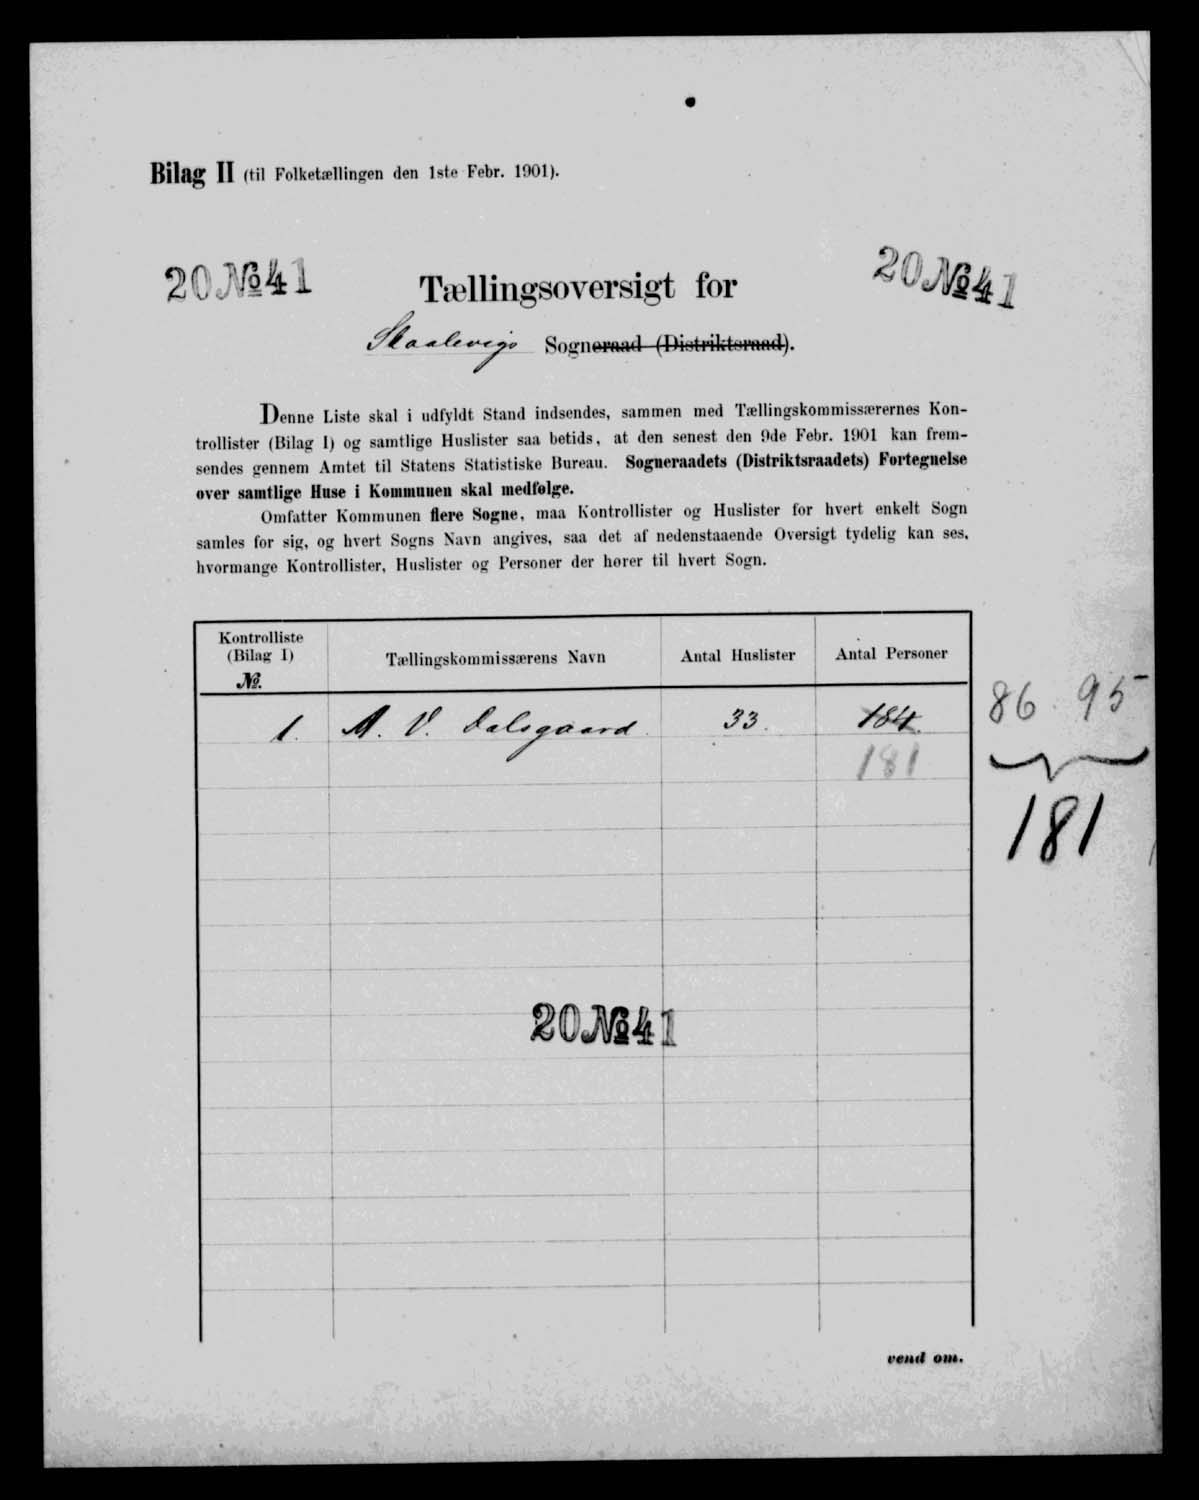 Bilag II (til Folketællingen den 1ste Febr. 1901).
20 № 41
20 № 41
Tællingsoversigt for
Skaalevigs Sogneraad (Distriktsraad).
Denne Liste skal i udfyldt Stand indsendes, sammen med Tællingskommissærernes Kon-
trollister (Bilag I) og samtlige Huslister saa betids, at den senest den 9de Febr. 1901 kan frem-
sendes gennem Amtet til Statens Statistiske Bureau. Sogneraadets (Distriktsraadets) Fortegnelse
over samtlige Huse i Kommunen skal medfølge.
Omfatter Kommunen flere Sogne, maa Kontrollister og Huslister for hvert enkelt Sogn
samles for sig, og hvert Sogns Navn angives, saa det af nedenstaaende Oversigt tydelig kan ses,
hvormange Kontrollister, Huslister og Personer der hører til hvert Sogn.
Kontrolliste
(Bilag I)
№.
Tællingskommissærens Navn
Antal Huslister
Antal Personer
1. A. V. Dalsgaard 33. 184.
181
86 95
181
20 № 41
vend om.